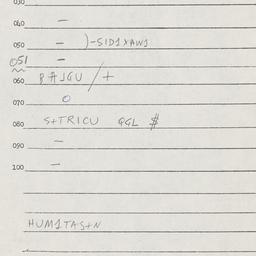 030
040 –
050 – )-SIDIXAWI
051 –
060 /+
070 O
080 S+TRICU QGL $
090 –
100 –
HUMITAS+N